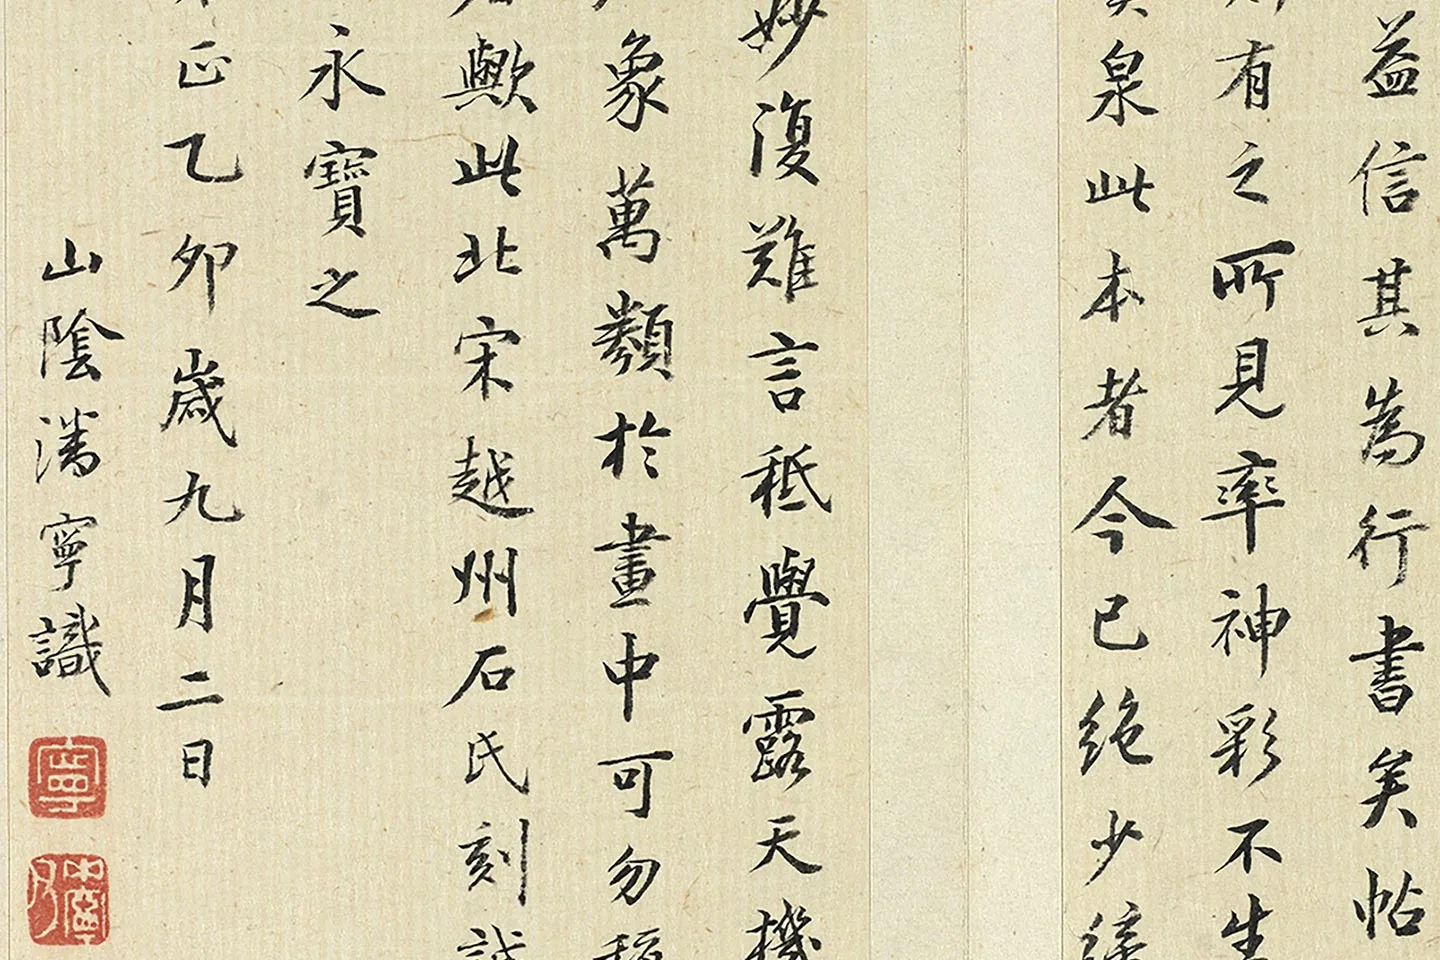 益信其為行書矣帖
有之所見率神彩不生
泉此本者今已絕少
妙復難言秪覺露天機
象萬類於畫中可勿
歟此北宋越州石氏刻誠
永寶之
正乙卯歲九月二日
山陰潘寧識
寧